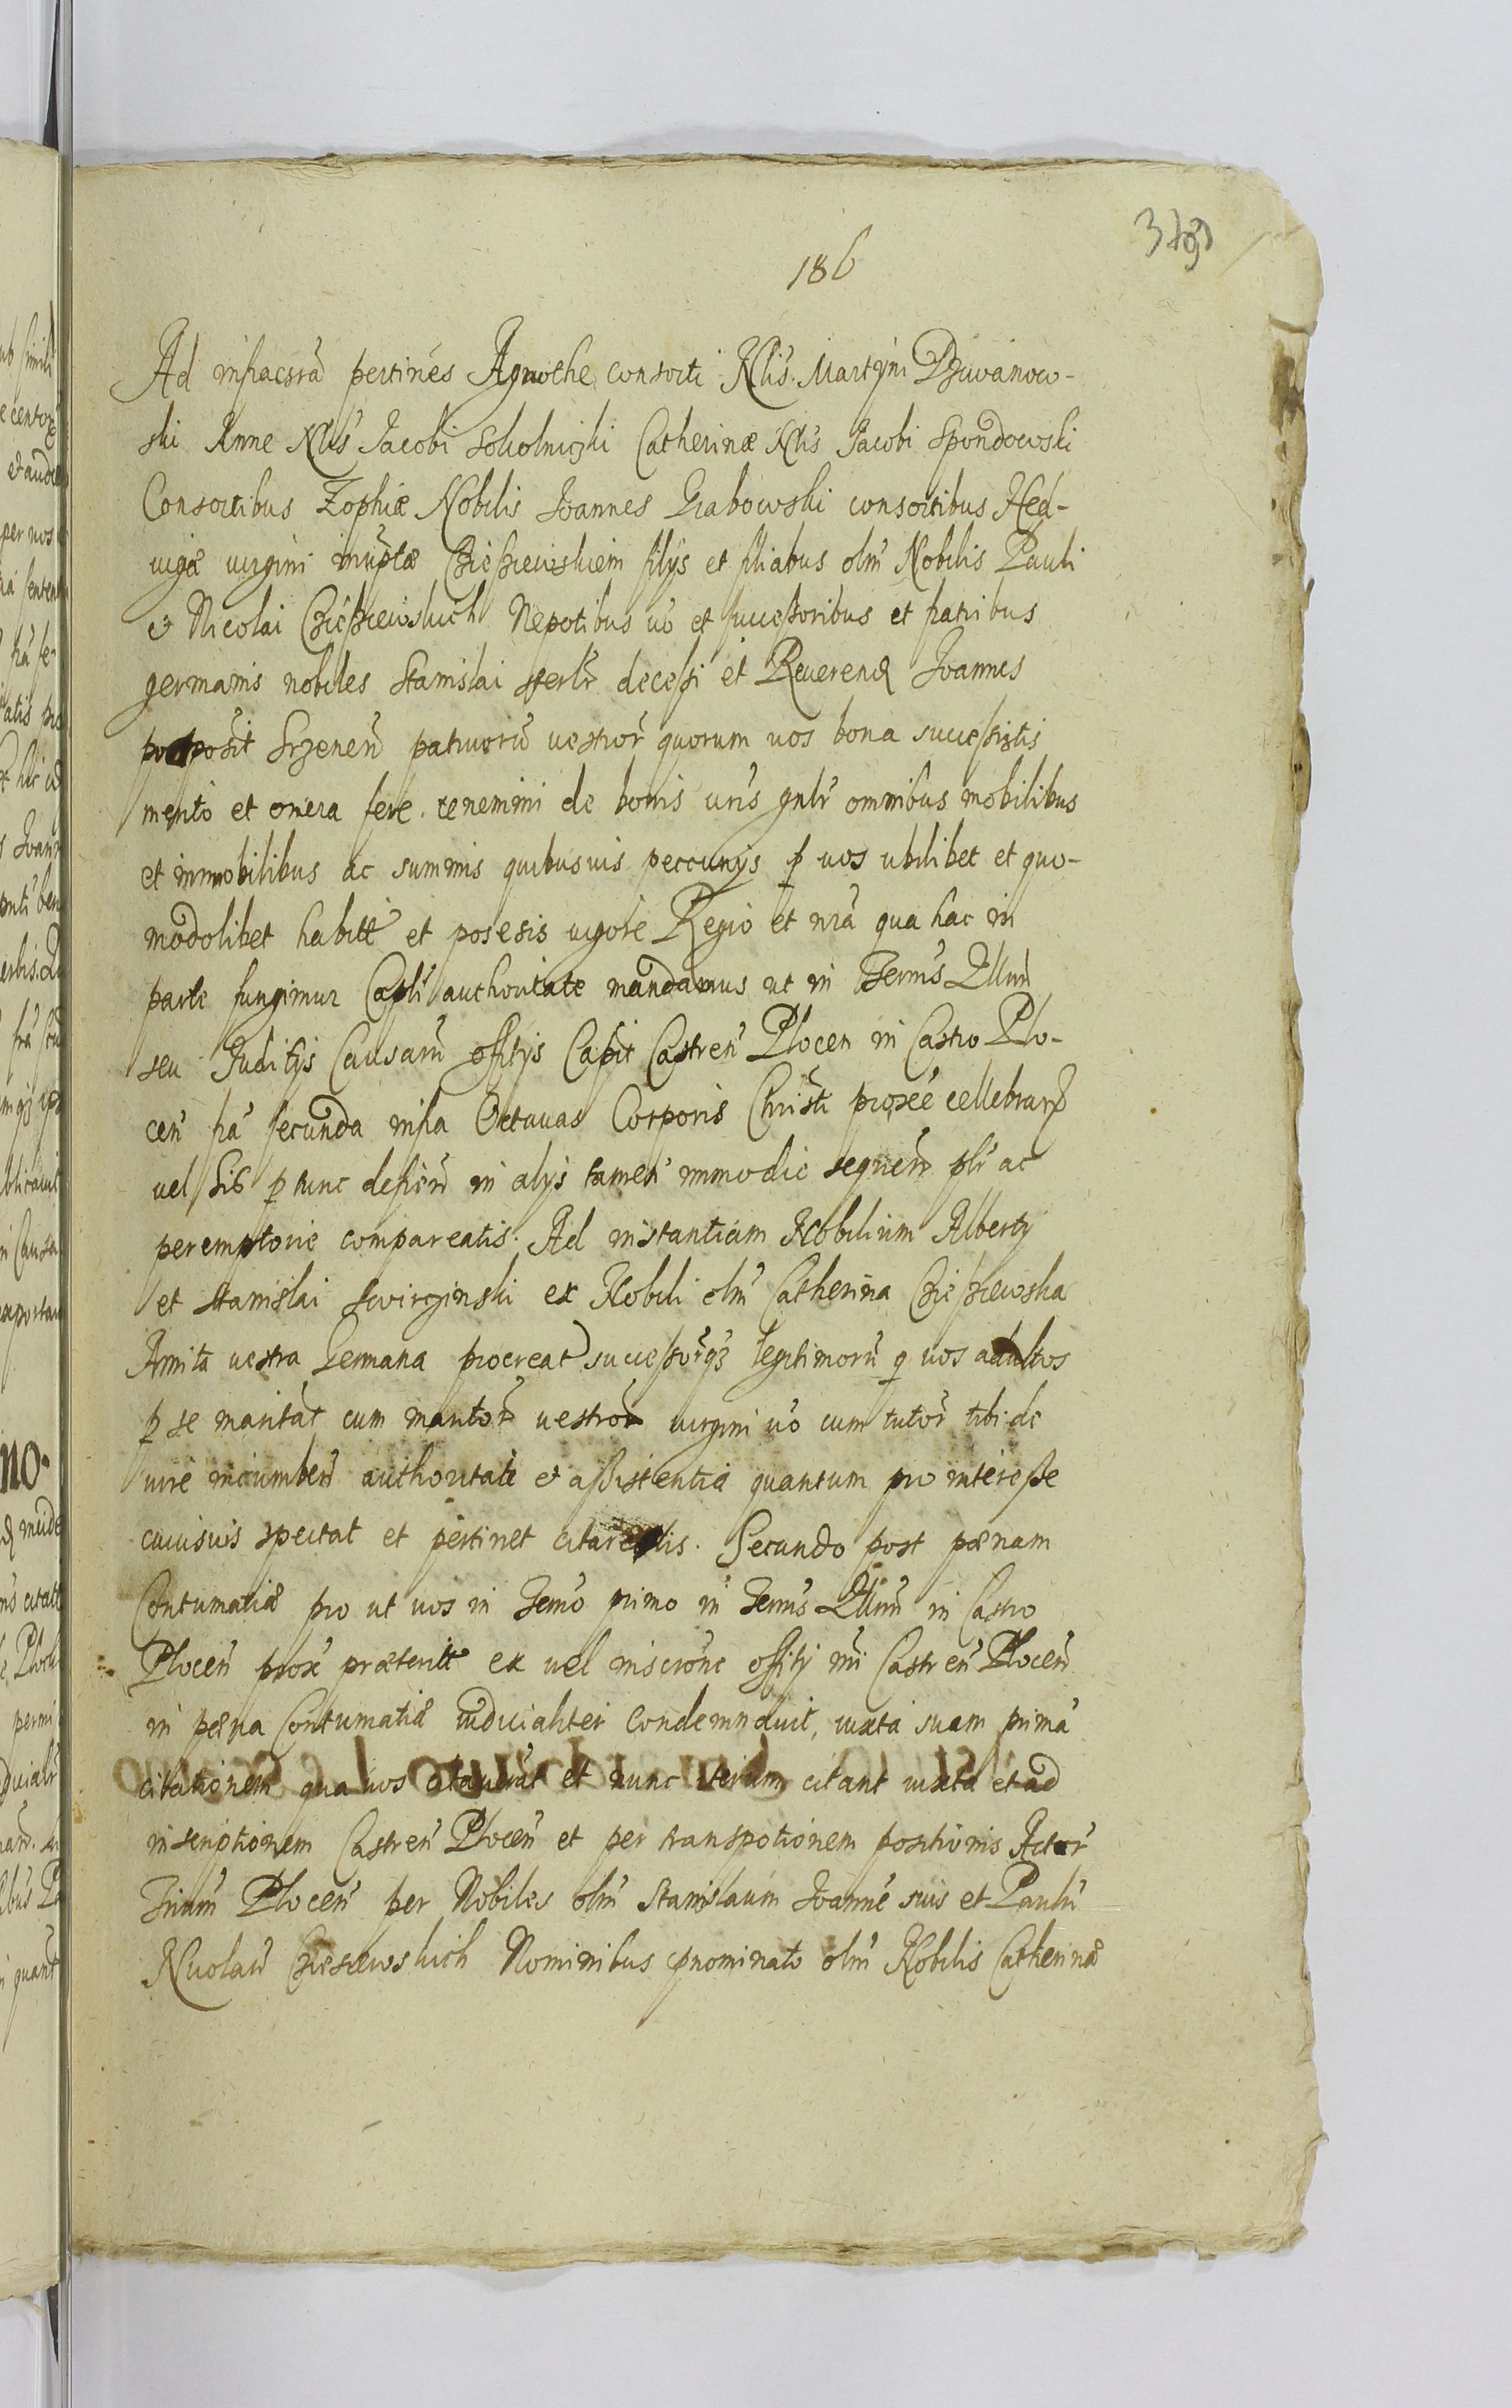 186
Ad infrascrã pertinẽs consorti Nlis Martyni Dzuvanow-
ski Anne Nlis Jacobi Sokolnizki Catherinæ Nlis Jacobi Spondowski
Consortibus Zophiæ Nobilis Joannes Grabowski consortibus Hed-
vigæ virgini inuptæ filys et filiabus olm Nobilis Pauli
et Nicolai Nepotibus vo et successoribus et patribus
germanis nobiles Stanislai sterlr decessi et Reverend Joannes
patruorũ vestror quorum vos bona successistis
merito et onera fere tenemini de bonis vris gnlr omnibus mobilibus
et immobilibus ac summis quibusvis peccunys p vos ubilibet et quo-
modolibet habitt et posesis vigore Regio et nra qua hac in
parte fungimur Capli authoritate mandamus ut in Termis Qllum
seu Juditys Causarũ offitys Capit Castren Plocen in Castro Plo-
cen fra secunda infra Octavas Corporis Christi proxe cellebrard
vel sis p tunc deficien in alys tamen immodie sequen plr ac
peremptorie compareatis. Ad instantiam Nobilium Alberty
et Stanislai ex Nobili olm Catherina
Amita vestra Germana procreat successorqz legitimorũ q vos adultos
p se maritat cum maritor vestror virgini vo cum tutor tibi de
iure incumben authoritate et assistentia quantum pro interesse
cuiusvis spectat et pertinet Secundo post pœnam
Contumatiæ pro ut vos in Termo primo in Termis Qllum in Castro
Plocen prox præteritt ex vel inscrone offity nri Castren Plocen
in pæna Contumatiæ iudicialiter condemnavit, iuxta suam prima
citationem qua vos citaverat et nunc iterum citant iuxta et ad
inscriptionem Castren Plocen et per transpotionem positionis Actor
Trium Plocen per Nobiles olm Stanislaum Joanne suis et Paulũ
Nicolaũ Nominibus pnominato olm Nobilis Catherinæ